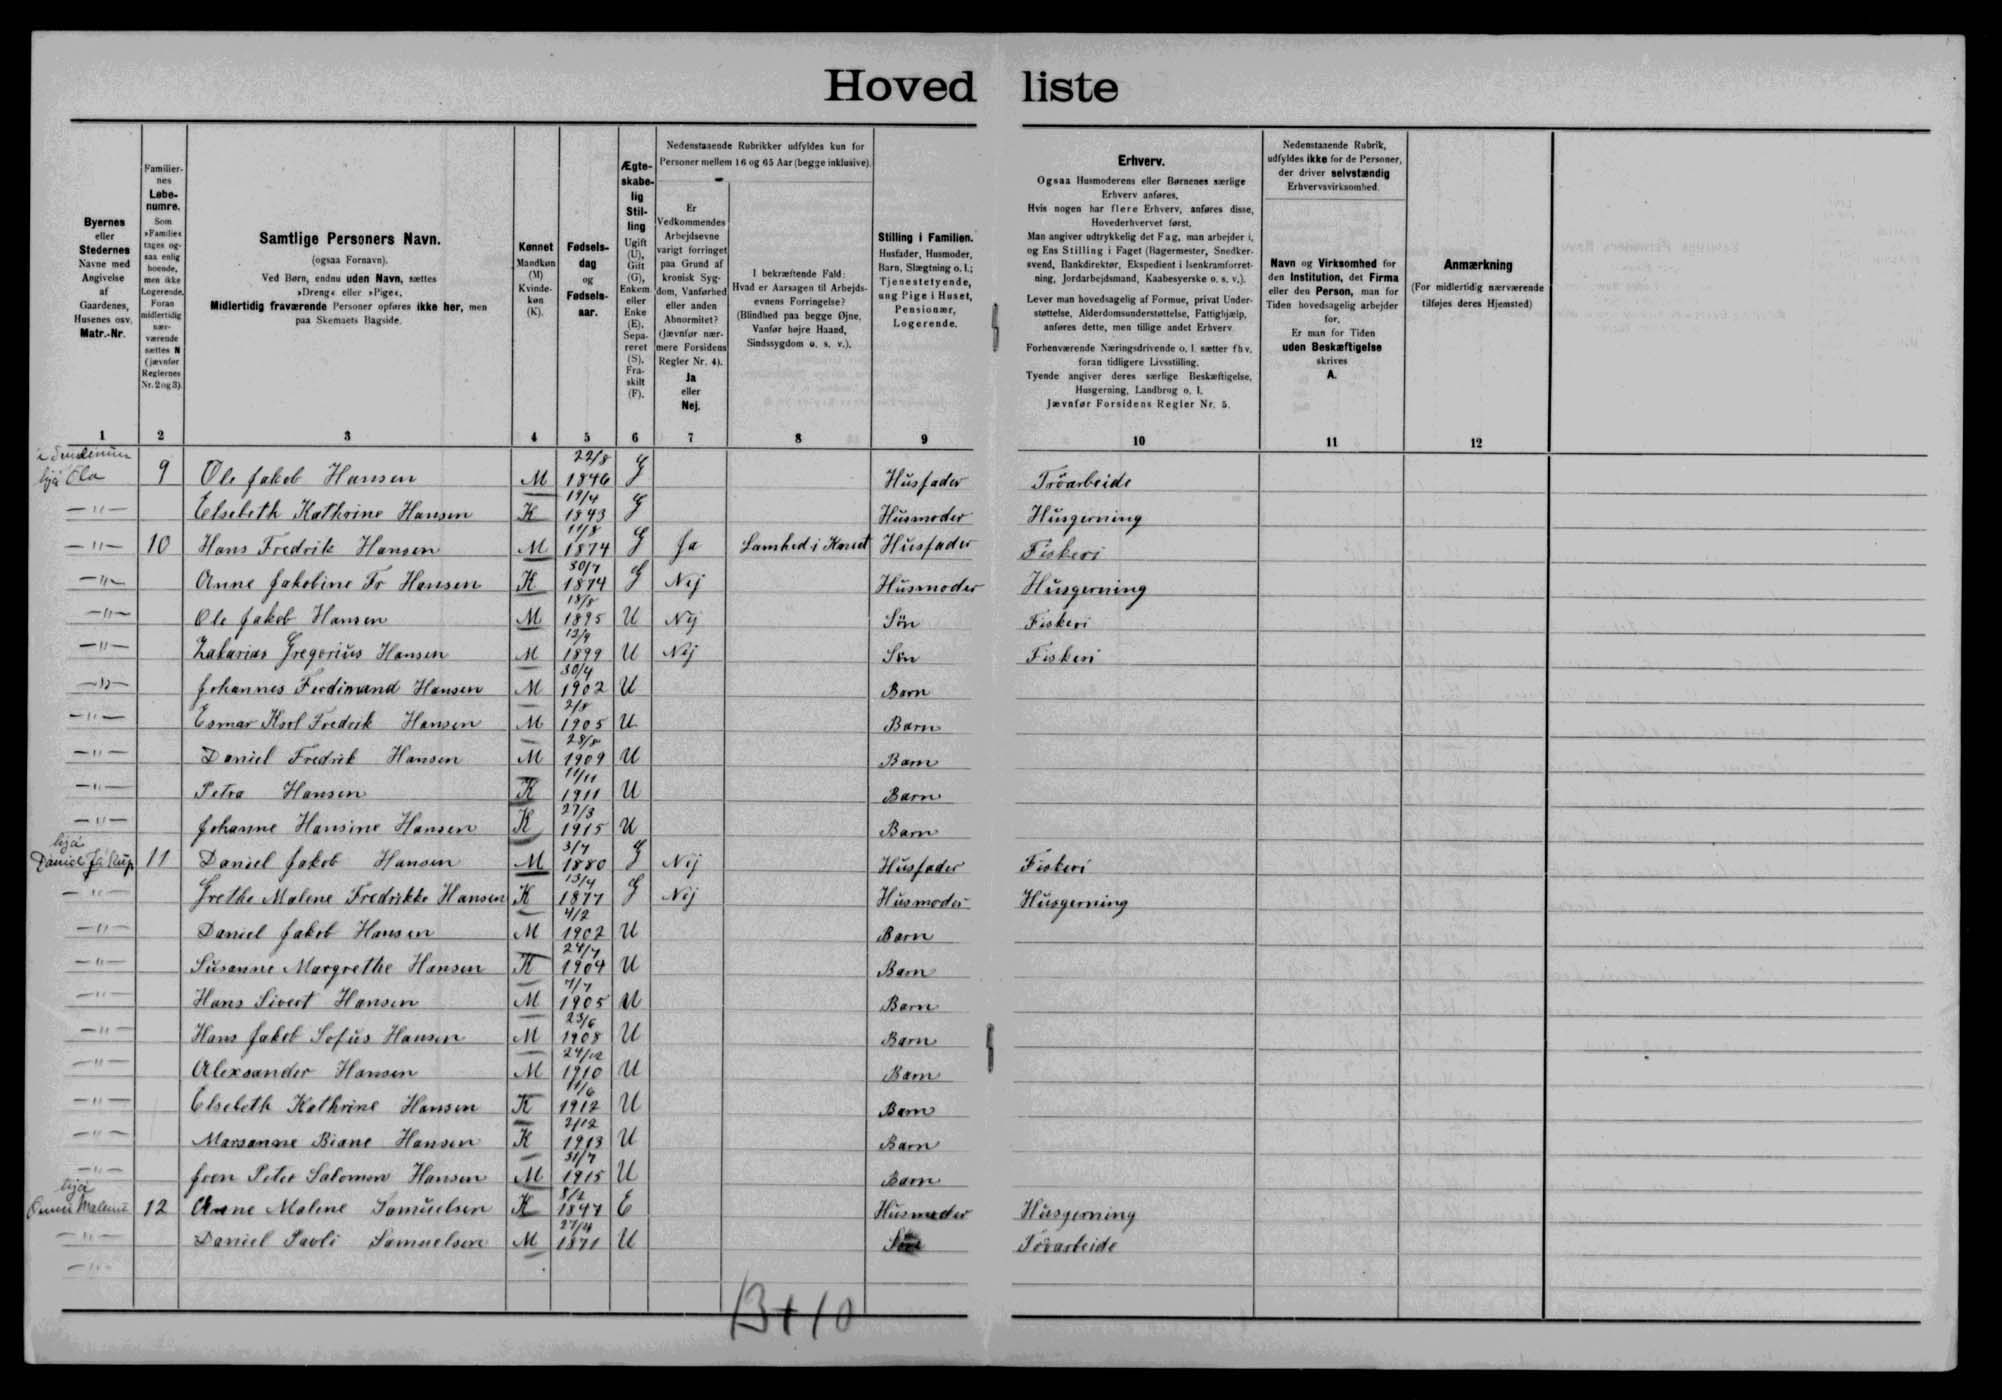 Hovedliste
Byernes eller Stedernes Navne med Angivelse af Gaardenes, Husenes osv. Matr.-Nr.
Familiernes Løbenumre. Som »Familie« tages ogsaa enlig boende, men ikke Logerende. Foran midlertidig nærværende sættes N (jævnfør Reglernes Nr. 2 og 3).
Samtlige Personers Navn.
(ogsaa Fornavn).
Ved Børn, endnu uden Navn, sættes
»Dreng« eller »Pige«.
Midlertidig fraværende Personer opføres ikke her, men
paa Skemaets Bagside.
Kønnet Mandkøn (M) Kvindekøn (K).
Fødselsdag og Fødselsaar.
Ægteskabelig Stilling Ugift (U), Gift (G), Enkem. eller Enke (E), Separeret (S), Fraskilt (F).
Nedenstaaende Rubrikker udfyldes kun for
Personer mellem 16 og 65 Aar (begge inklusive).
Er Vedkommendes Arbejdsevne varigt forringet paa Grund af kronisk Sygdom, Vanførhed eller anden Abnormitet? (Jævnfør nærmere Forsidens Regler Nr. 4). Ja eller Nej.
I bekræftende Fald: Hvad er Aarsagen til Arbejdsevnens Forringelse? (Blindhed paa begge Øjne, Vanfør højre Haand, Sindssygdom o. s. v.).
Stilling i Familien. Husfader, Husmoder, Barn, Slægtning o. l.; Tjenestetyende, ung Pige i Huset, Pensionær, Logerende.
Erhverv.
Ogsaa Husmoderens eller Børnenes særlige
Erhverv anføres.
Hvis nogen har flere Erhverv, anføres disse,
Hovederhvervet først.
Man angiver udtrykkelig det Fag, man arbejder i,
og Ens Stilling i Faget (Bagermester, Snedker-
svend, Bankdirektør, Ekspedient i Isenkramforret-
ning, Jordarbejdsmand, Kaabesyerske o. s. v.).
Lever man hovedsagelig af Formue, privat Under-
støttelse, Alderdomsunderstøttelse, Fattighjælp,
anføres dette, men tillige andet Erhverv.
Forhenværende Næringsdrivende o. l. sætter fhv.
foran tidligere Livsstilling.
Tyende angiver deres særlige Beskæftigelse,
Husgerning, Landbrug o. l.
Jævnfør Forsidens Regler Nr. 5.
Nedenstaaende Rubrik,
udfyldes ikke for de Personer,
der driver selvstændig
Erhvervsvirksomhed.
Navn og Virksomhed for
den Institution, det Firma
eller den Person, man for
Tiden hovedsagelig arbejder
for.
Er man for Tiden
uden Beskæftigelse
skrives
A.
Anmærkning
(For midlertidig nærværende
tilføjes deres Hjemsted)
1 2 3 4 5 6 7 8 9 10 11 12
hjá Óla 9 Ole Jakob Hansen M 22/8 1846 G Husfader Tröarbeide
—"— Elsebeth Kathrine Hansen K 19/4 1843 G Husmoder Husgerning
—"— 10 Hans Fredrik Hansen M 11/8 1874 G Ja Lamhed i Knæet Husfader Fiskeri
—"— Anne Jakobine Fr Hansen K 30/7 1874 G Nej Husmoder Husgerning
—"— Ole Jakob Hansen M 18/8 1895 U Nej Søn Fiskeri
—"— Zakarias Gregorius Hansen M 13/9 1899 U Nej Søn Fiskeri
—"— Johannes Ferdinand Hansen M 30/4 1902 U Barn
—"— Esmar Karl Fredrik Hansen M 2/8 1905 U Barn
—"— Daniel Fredrik Hansen M 28/8 1909 U Barn
—"— Petra Hansen K 11/11 1911 U Barn
—"— Johanne Hansine Hansen K 27/3 1915 U Barn
hjá Daniel Jákup 11 Daniel Jakob Hansen M 3/7 1880 G Nej Husfader Fiskeri
—"— Grethe Malene Fredrikke Hansen K 13/4 1877 G Nej Husmoder Husgerning
—"— Daniel Jakob Hansen M 4/2 1902 U Barn
—"— Susanne Margrethe Hansen K 24/7 1904 U Barn
—"— Hans Sivert Hansen M 7/7 1905 U Barn
—"— Hans Jakob Sofus Hansen M 23/6 1908 U Barn
—"— Alexsander Hansen M 24/12 1910 U Barn
—"— Elsebeth Kathrine Hansen K 11/6 1912 U Barn
—"— Marsanne Biane Hansen K 2/12 1913 U Barn
—"— Joen Peter Salomon Hansen M 31/7 1915 U Barn
hjá Onnu Malenu 12 Anne Malene Samuelsen K 8/2 1847 E Husmoder Husgerning
—"— Daniel Pavli Samuelsen M 1871 U Søn Tröarbeide
—"—
13+10